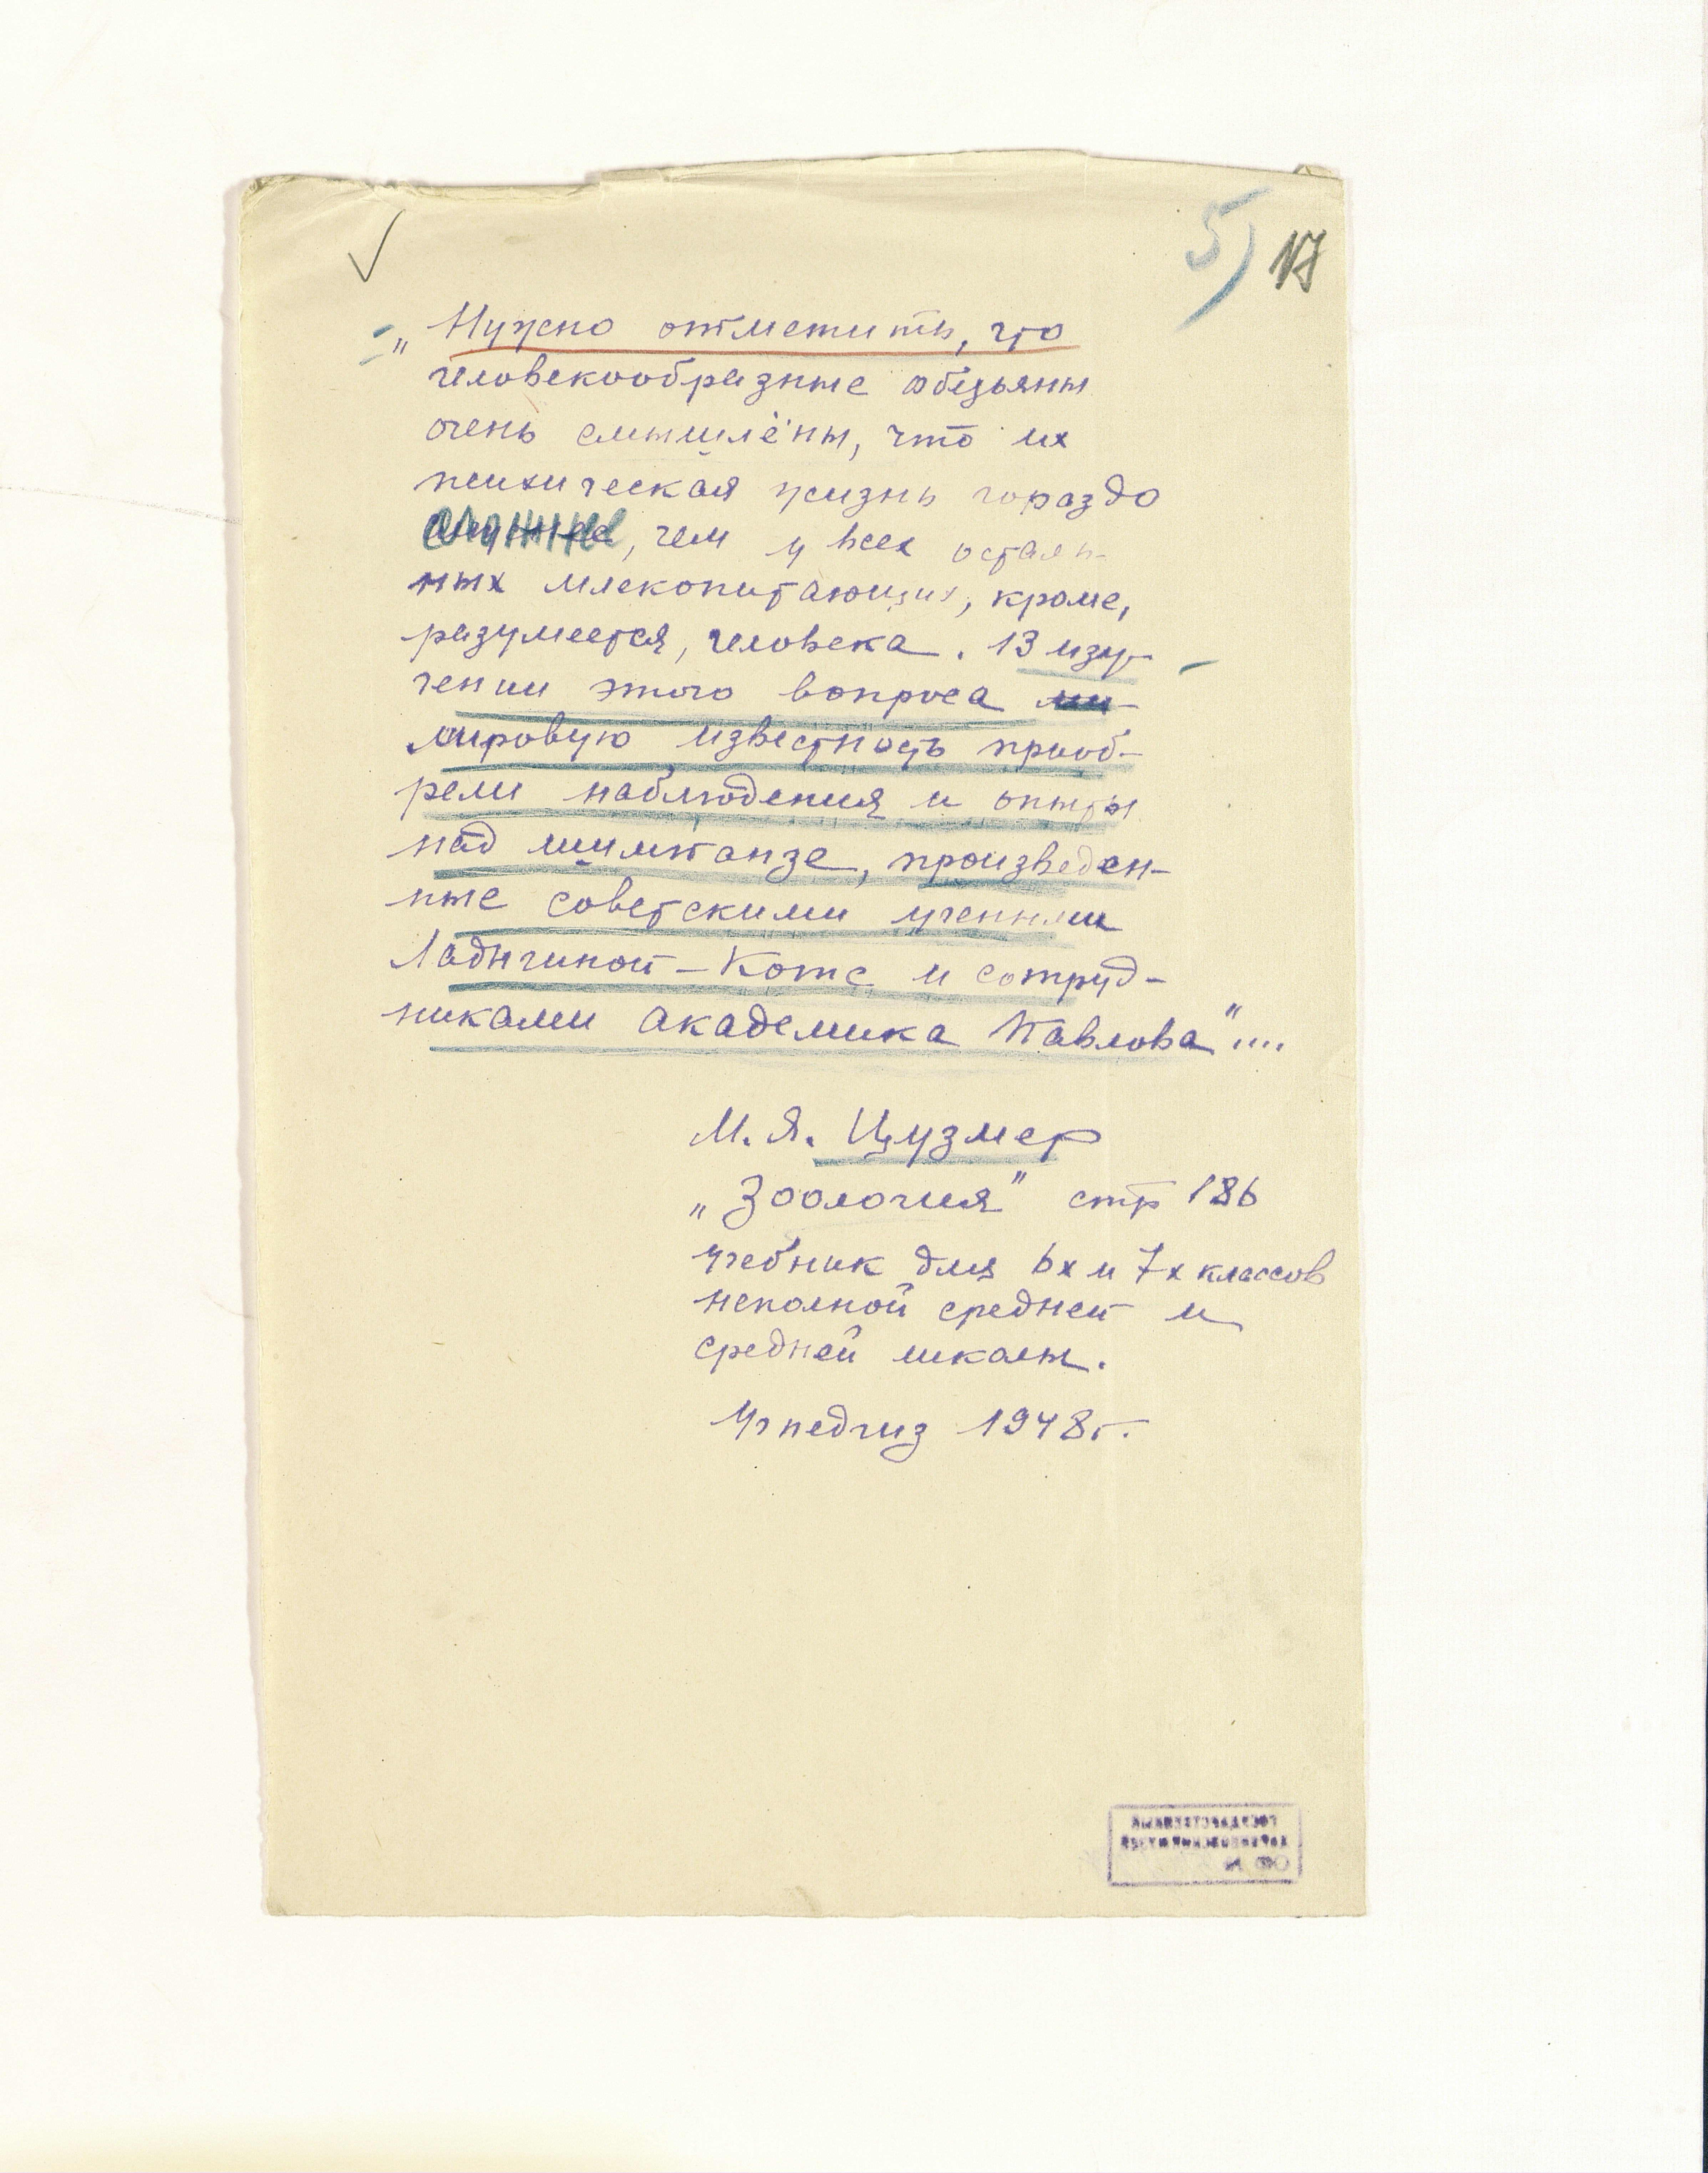 5) 17
„Нужно отметить, что
человекообразные обезьяны
очень смышлёны, что их
психическая жизнь гораздо
сложнее, чем у всех осталь-
ных млекопитающих, кроме,
разумеется, человека. В изу-
чении этого вопроса ми-
мировую известность приоб-
рели наблюдения и опыты
над шимпанзе, произведен-
ные советскими учеными
Ладыгиной-Котс и сотруд-
никами академика Павлова"....
М. Я. Цузмер
„Зоология" стр 186
учебник для 6х и 7х классов
неполной средней и
средней школы.
Учпедгиз 1948г.
ГОСУДАРСТВЕННЫЙ
ДАРВИНОВСКИЙ МУЗЕЙ
ОФ №